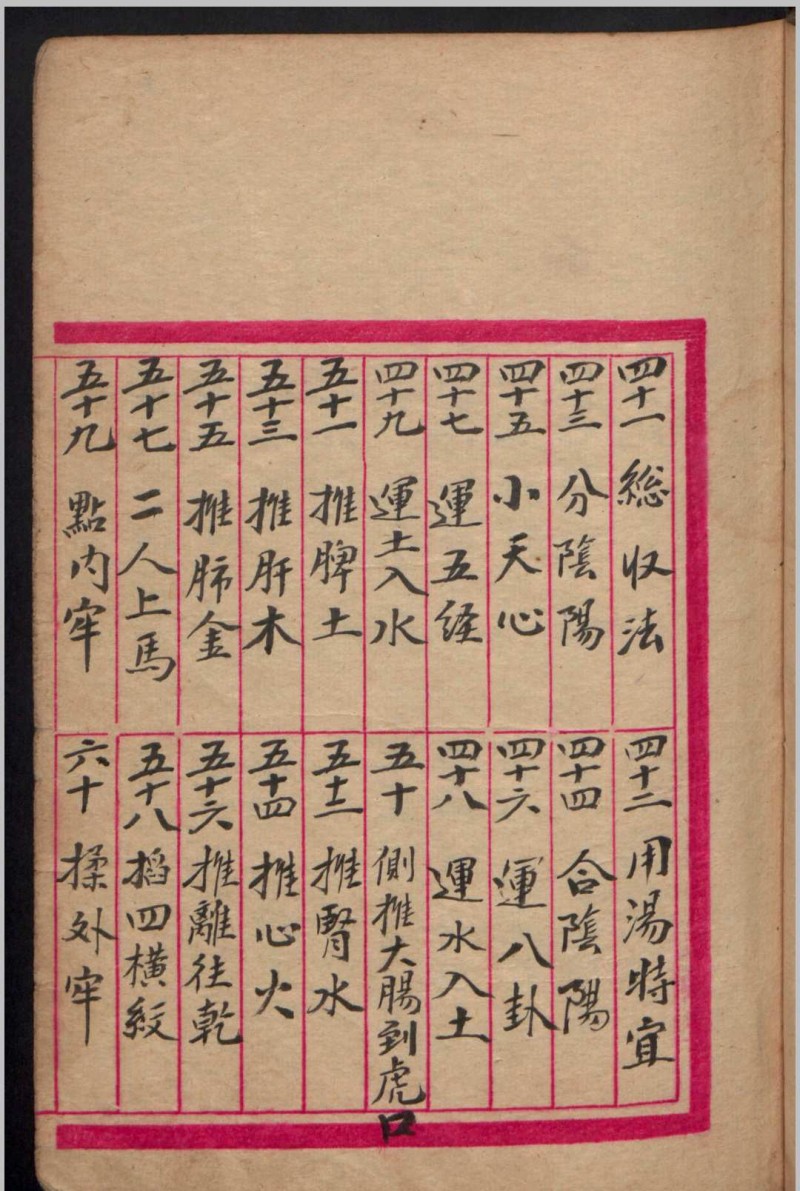 四十一 総收法
四十二 用湯時宜
四十三 分陰陽
四十四 合陰陽
四十五 小天心
四十六 運八卦
四十七 運五経
四十八 運水入土
四十九 運土入水
五十 側推大腸到虎口
五十一 推脾土
五十二 推腎水
五十三 推肝木
五十四 推心火
五十五 推肺金
五十六 推離往乾
五十七 二人上馬
五十八 掐四橫紋
五十九 點内牢
六十 揉外牢